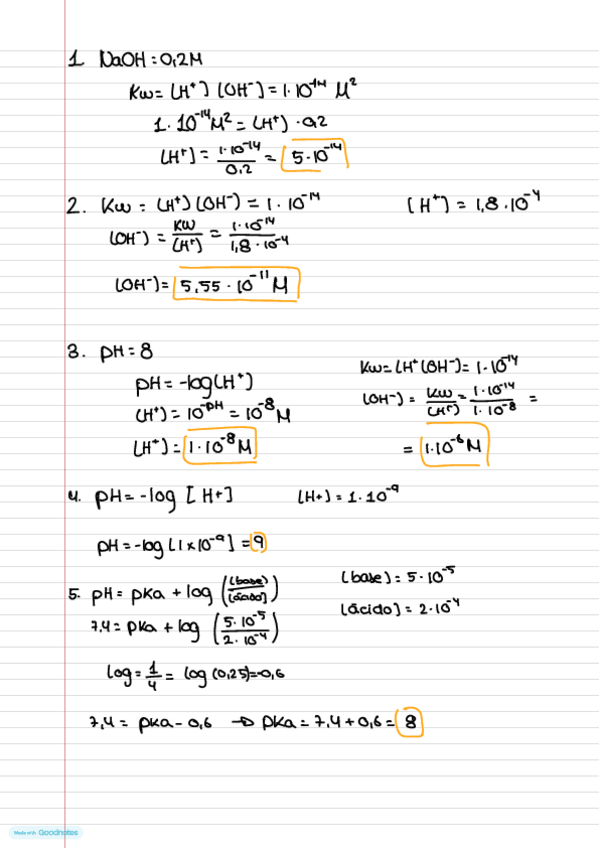 1. NaOH = 0,2M
Kw = [H⁺] [OH⁻] = 1·10⁻¹⁴ M²
1·10⁻¹⁴M² = [H⁺] · 0,2
[H⁺] = 1·10⁻¹⁴/0,2 = 5·10⁻¹⁴
2. Kw = [H⁺] [OH⁻] = 1·10⁻¹⁴ [H⁺] = 1,8·10⁻⁴
[OH⁻] = Kw/[H⁺] = 1·10⁻¹⁴/1,8·10⁻⁴
[OH⁻] = 5,55·10⁻¹¹ M
3. pH = 8
pH = -log[H⁺]
[H⁺] = 10⁻ᵖᴴ = 10⁻⁸ M
[H⁺] = 1·10⁻⁸ M
Kw = [H⁺[OH⁻] = 1·10⁻¹⁴
[OH⁻] = Kw/[H⁺] = 1·10⁻¹⁴/1·10⁻⁸ =
= 1·10⁻⁶ M
4. pH = -log [H+] [H+] = 1·10⁻⁹
pH = -log [1x10⁻⁹] = 9
5. pH = pKa + log ([base]/[ácido]) [base] = 5·10⁻⁵
7,4 = pKa + log (5·10⁻⁵/2·10⁻⁴) [ácido] = 2·10⁻⁴
log = 1/4 = log (0,25) = -0,6
7,4 = pKa - 0,6 → pKa = 7,4 + 0,6 = 8
Made with Goodnotes